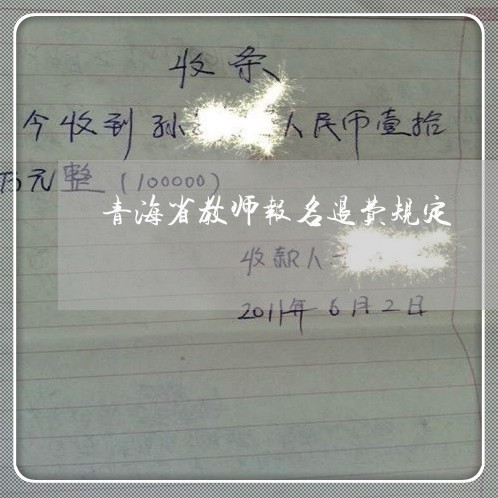 收条
今收到孙 人民币壹拾
万元整(100000)
青海省教师报名退费规定
收款人
2011年6月2日